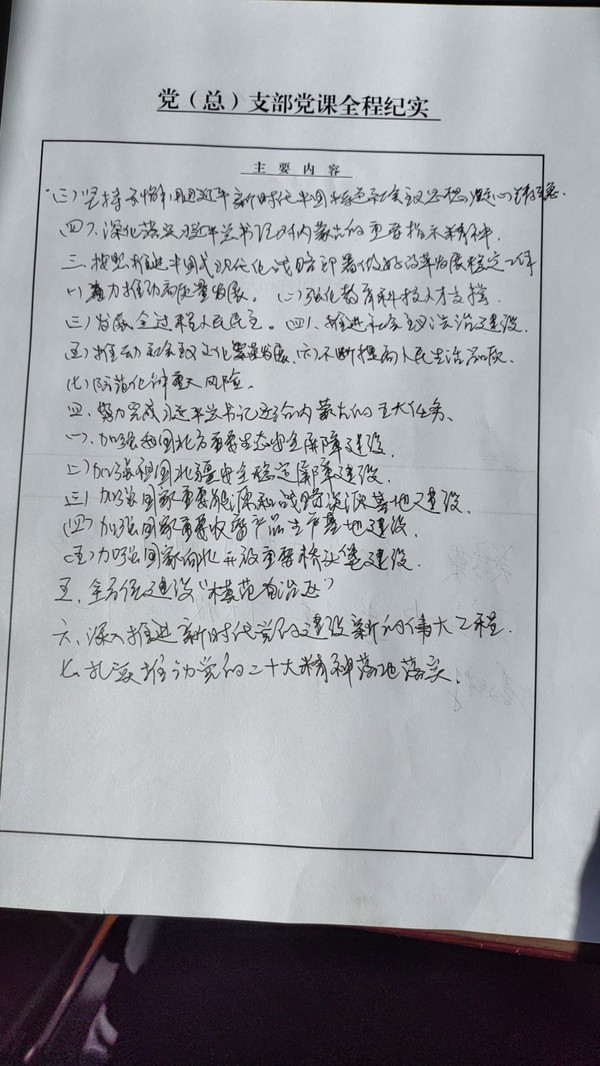 党（总）支部党课全程纪实
主要内容
(三)坚持不懈用习近平新时代中国特色社会主义思想凝心铸魂.
(四)、深化落实习近平总书记对内蒙古的重要指示精神.
三、按照推进中国式现代化战略部署做好改革发展稳定工作
(一)着力推动高质量发展。(二)强化教育科技人才支撑.
(三)发展全过程人民民主。(四)、推进社会主义法治建设.
(五)推动社会主义文化繁荣发展.(六)不断提高人民生活品质.
(七)防范化解重大风险.
四、努力完成习近平总书记交给内蒙古的五大任务、
(一)、加强我国北方重要生态安全屏障建设.
(二)加强祖国北疆安全稳定屏障建设.
(三)加强国家重要能源和战略资源基地建设.
(四)加强国家重要农畜产品生产基地建设.
(五)加强国家向北开放重要桥头堡建设.
五、全方位建设"模范自治区"
六、深入推进新时代党的建设新的伟大工程.
七、扎实推动党的二十大精神落地落实.